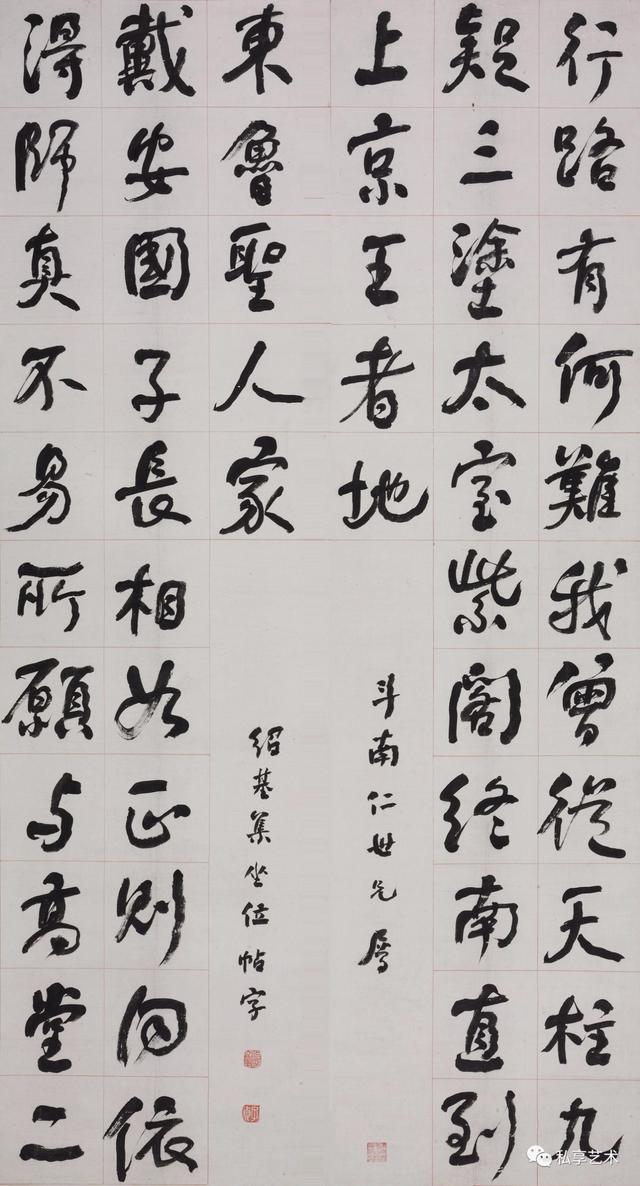 行路有何難我曾從天柱九
疑三塗太室紫閣終南直到
上京王者地
斗南仁世兄屬
得師真不易所願与高堂二
戴安國子長相如正則向依
東魯聖人家
紹基集坐位帖字
私享艺术